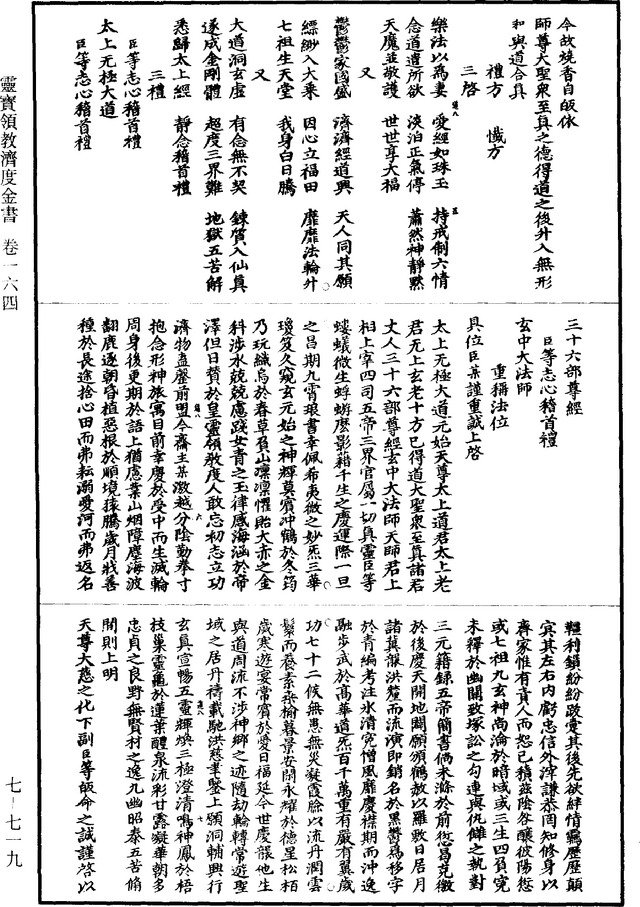 今故燒香自皈依
師尊大聖衆至真之德得道之後升入無形
和與道合真
禮方　懺方
三啓
樂法以爲妻　愛經如珠玉　持戒制六情
念道遣所欲　淡泊正氣停　蕭然神靜默
天魔並敬護　世世享大福
又
鬱鬱家國盛　濟濟經道興　天人同其願
縹緲入大乘　因心立福田　靡靡法輪升
七祖生天堂　我身白日騰
又
大道洞玄虛　有念無不契　鍊質入仙真
遂成金剛體　超度三界難　地獄五苦解
悉歸太上經　靜念稽首禮
三禮
臣等志心稽首禮
太上無極大道
臣等志心稽首禮
三十六部尊經
臣等志心稽首禮
玄中大法師
重稱法位
具位臣某謹重誠上啓
太上無極大道元始天尊太上道君太上老
君無上玄老十方已得道大聖衆至真諸君
丈人三十六部尊經玄中大法師天師君上
相上宰四司五帝三界官屬一切真靈臣等
螻蟻微生蜉蝣塵影藉千生之慶運際一旦
之昌期九霄琅書幸佩希夷微之妙炁三華
瓊笈久窺玄元始之神輝莫賓沖鶴於冬筠
乃玩織烏於春草負山凛凛懼貽大赤之金
科涉水兢兢慮踐女青之玉律感海涵於帝
澤但日贊於皇靈領教度人敢忘初志立功
濟物盍磬前盟今齋主某激越分陰勤拳寸
抱念形神旅寓目前幸慶於受中而生滅輪
周身後更期於語上猶慮葉山烟障塵海波
翻鹿逐朝昏植惡根於順境猿騰歲月戕善
種於長途捨心田而弗耘溺愛河而弗返名
韁利鎖紛紛跋疐其後先欲絆情羈歷歷顛
冥其左右內虧忠信外滓謙恭罔知修身以
齊家惟有責人而恕己積兹陰咎釀彼陽愆
或七祖九玄神尚淪於暗域或三生四負冤
未釋於幽關致塚訟之勾連與仇讎之執對
三元籍録五帝簡書倘未滌於前愆曷克徼
於後慶天開地闢願頒鶴赦以羅敷日居月
諸冀瀧洪釐而流演即銷名於黑簿爲移字
於青編考注氷清冤憎風靡慶襟期而沖逸
融步武於高華道炁百千萬重有嚴有翼歲
功七十二候無患無災凝霞臉以流丹潤雲
鬢而養素桑榆暮景安閑永耀於德星松栢
歲寒遊宴常賓於愛日福延今世慶襲他生
與道周流不涉神鄉之迹隨劫輪轉常遊聖
域之居丹禱載馳洪慈聿鑒上願洞輔興行
玄真宣暢五靈輝煥三極澄清鳴神鳳於梧
枝巢靈龜於蓮葉醴泉流彩甘露凝華朝多
忠貞之良野無賢材之逸九幽昭泰五苦脩
閑則上明
天尊大慈之化下副臣等皈命之誠謹啓以
靈寶領教濟度金書　卷一六四
七－七一九